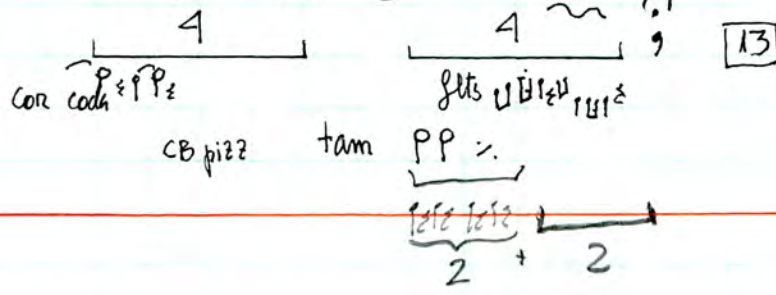 4 4 13
cor coda flts
CB pizz tam
2 + 2